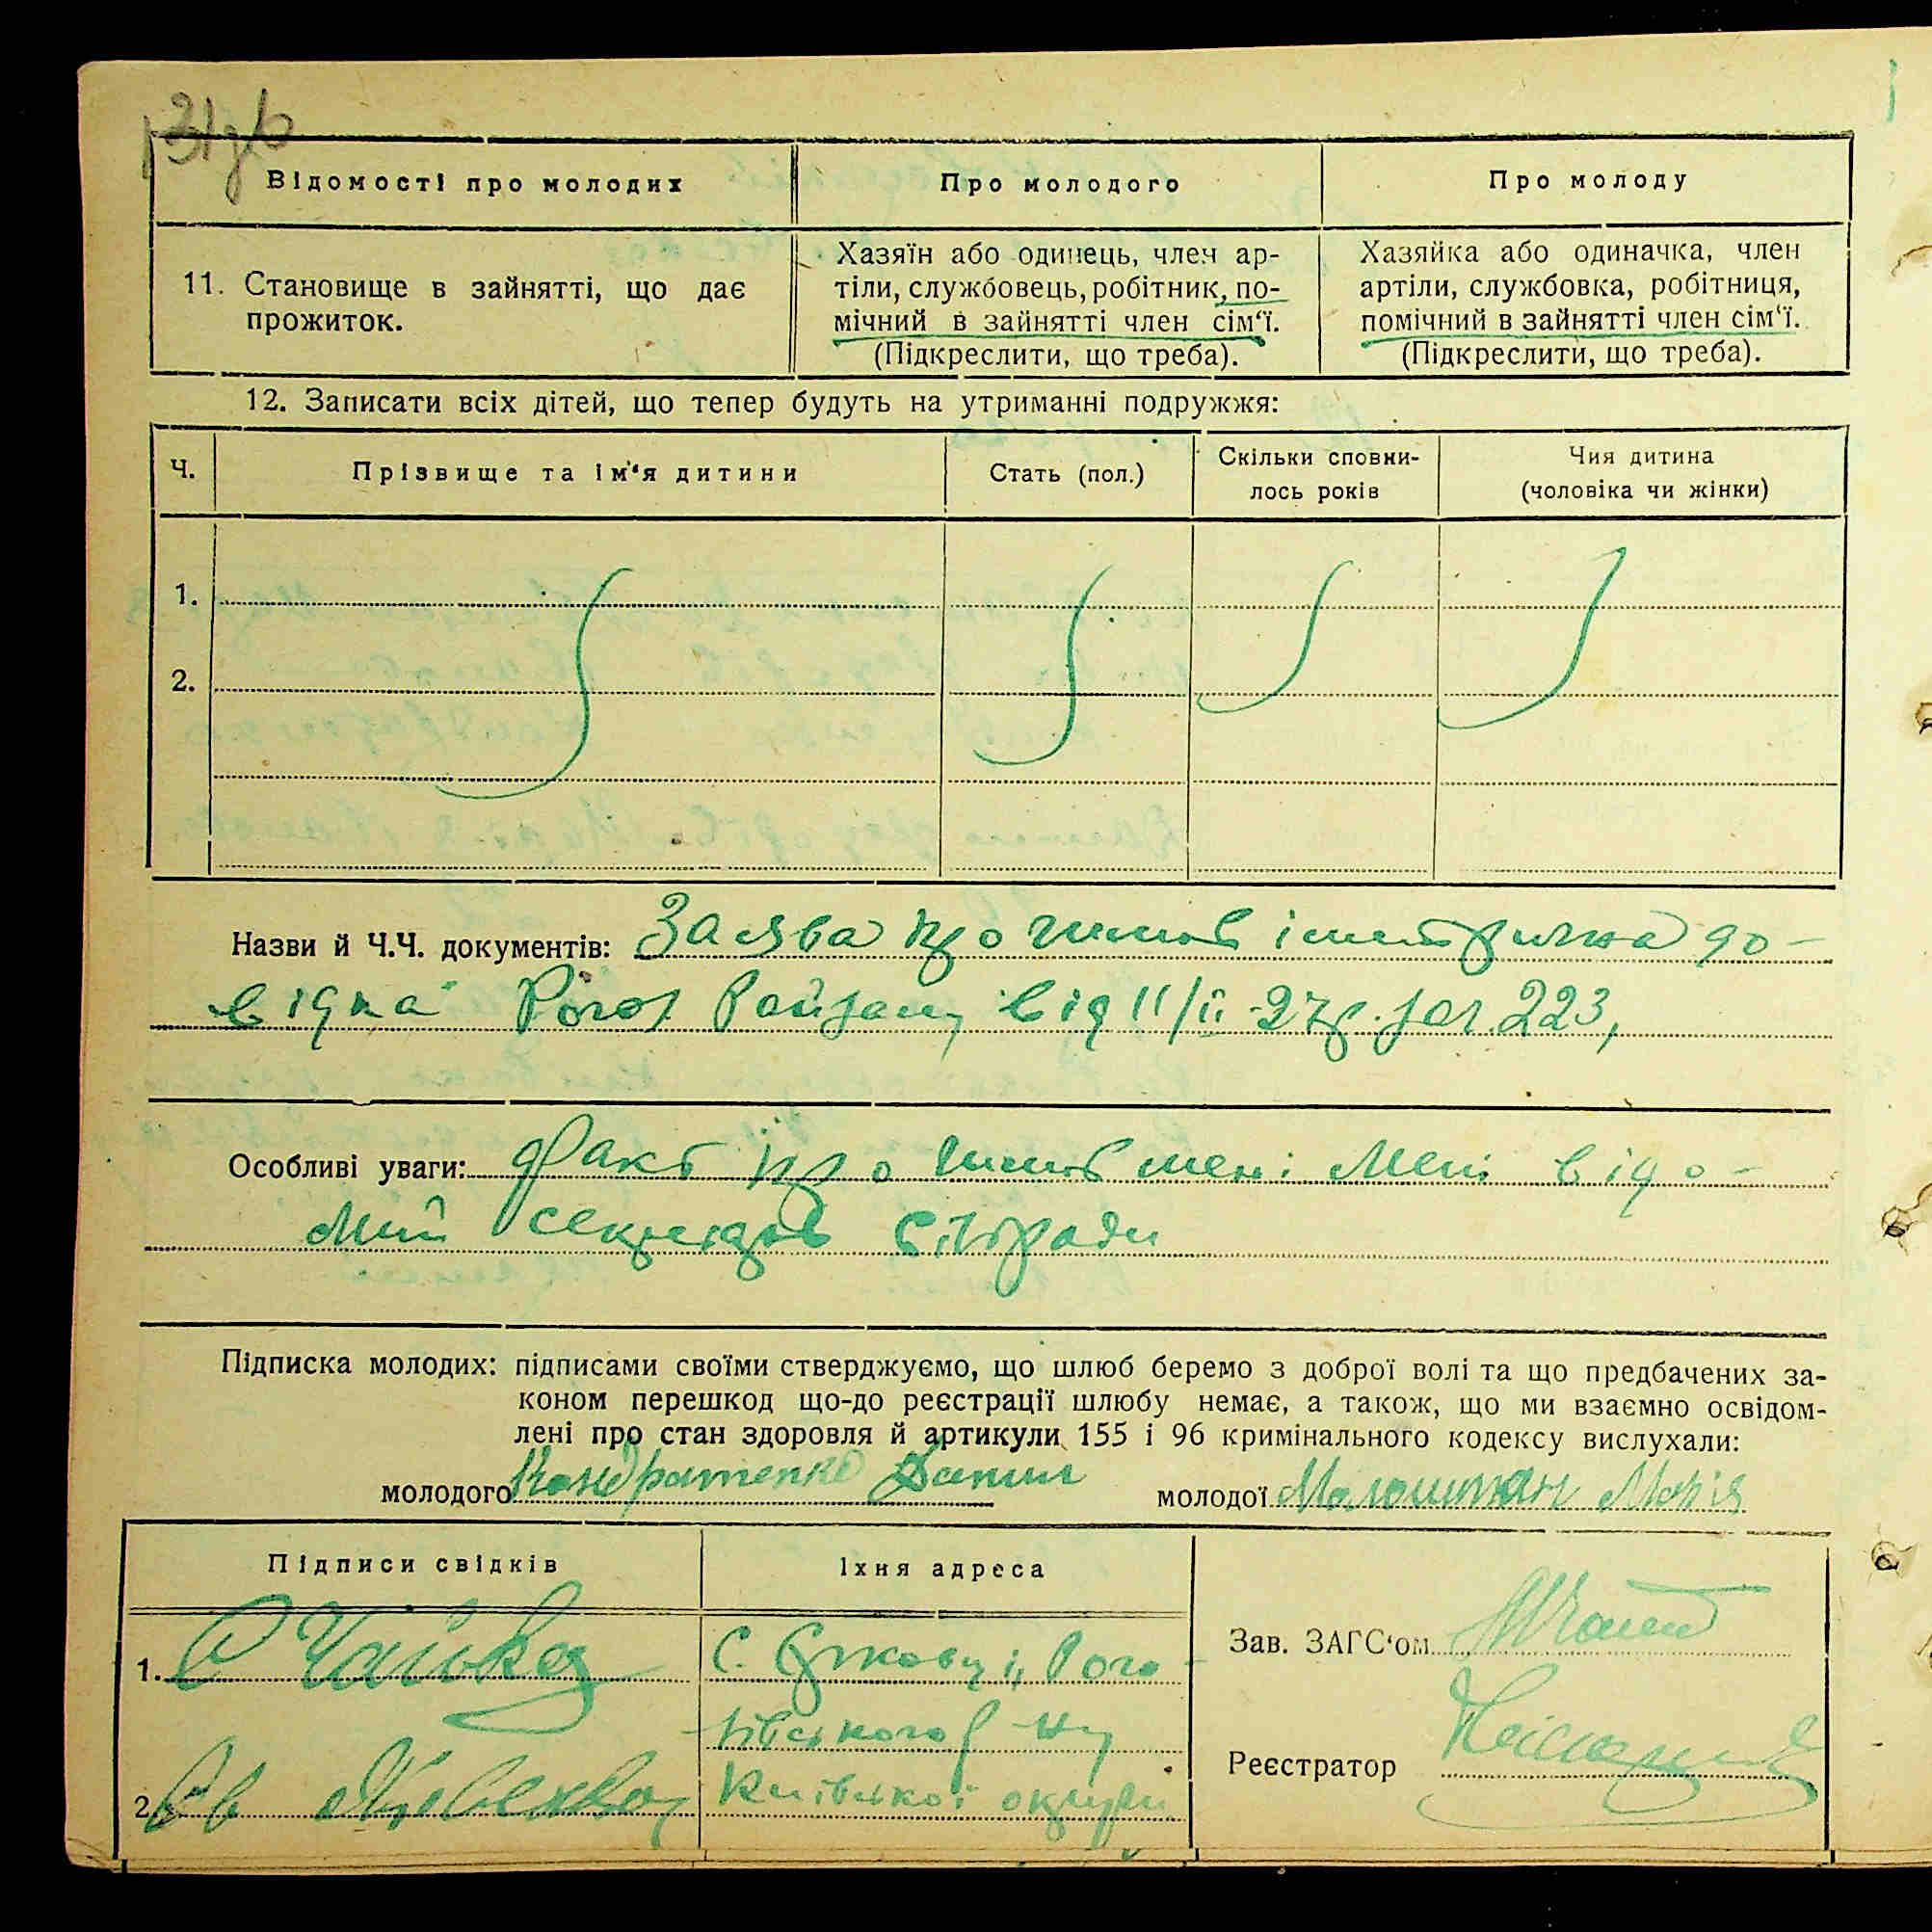 31зв
Відомості про молодих
Про молодого
Про молоду
11. Становище в зайнятті, що дає
прожиток.
Хазяїн або одинець, член ар-
тіли, службовець, робітник, по-
мічний в зайнятті член сім‘ї.
(Підкреслити, що треба).
Хазяйка або одиначка, член
артіли, службовка, робітниця,
помічний в зайнятті член сім‘ї.
(Підкреслити, що треба).
12. Записати всіх дітей, що тепер будуть на утриманні подружжя:
Ч.
Прізвище та ім‘я дитини
Стать (пол.)
Скільки сповни-
лось років
Чия дитина
(чоловіка чи жінки)
1.
2.
Назви й Ч.Ч. документів: Заява про шлюб і метрична до-
відка Рогоз Райзагсу від 11/II-27р. за 223,
Особливі уваги: Факт про шлюб мені відо-
мий секретарь Сільради
Підписка молодих: підписами своїми стверджуємо, що шлюб беремо з доброї волі та що предбачених за-
коном перешкод що-до реєстрації шлюбу немає, а також, що ми взаємно освідом-
лені про стан здоровля й артикули 155 і 96 кримінального кодексу вислухали:
молодого Кондратенко Данил
молодої Малоштан Марія
Підписи свідків
Їхня адреса
1. Чайка
С. Рого-
зівського р-ну
Київської округи
2.
Зав. ЗАГС‘ом
Реєстратор